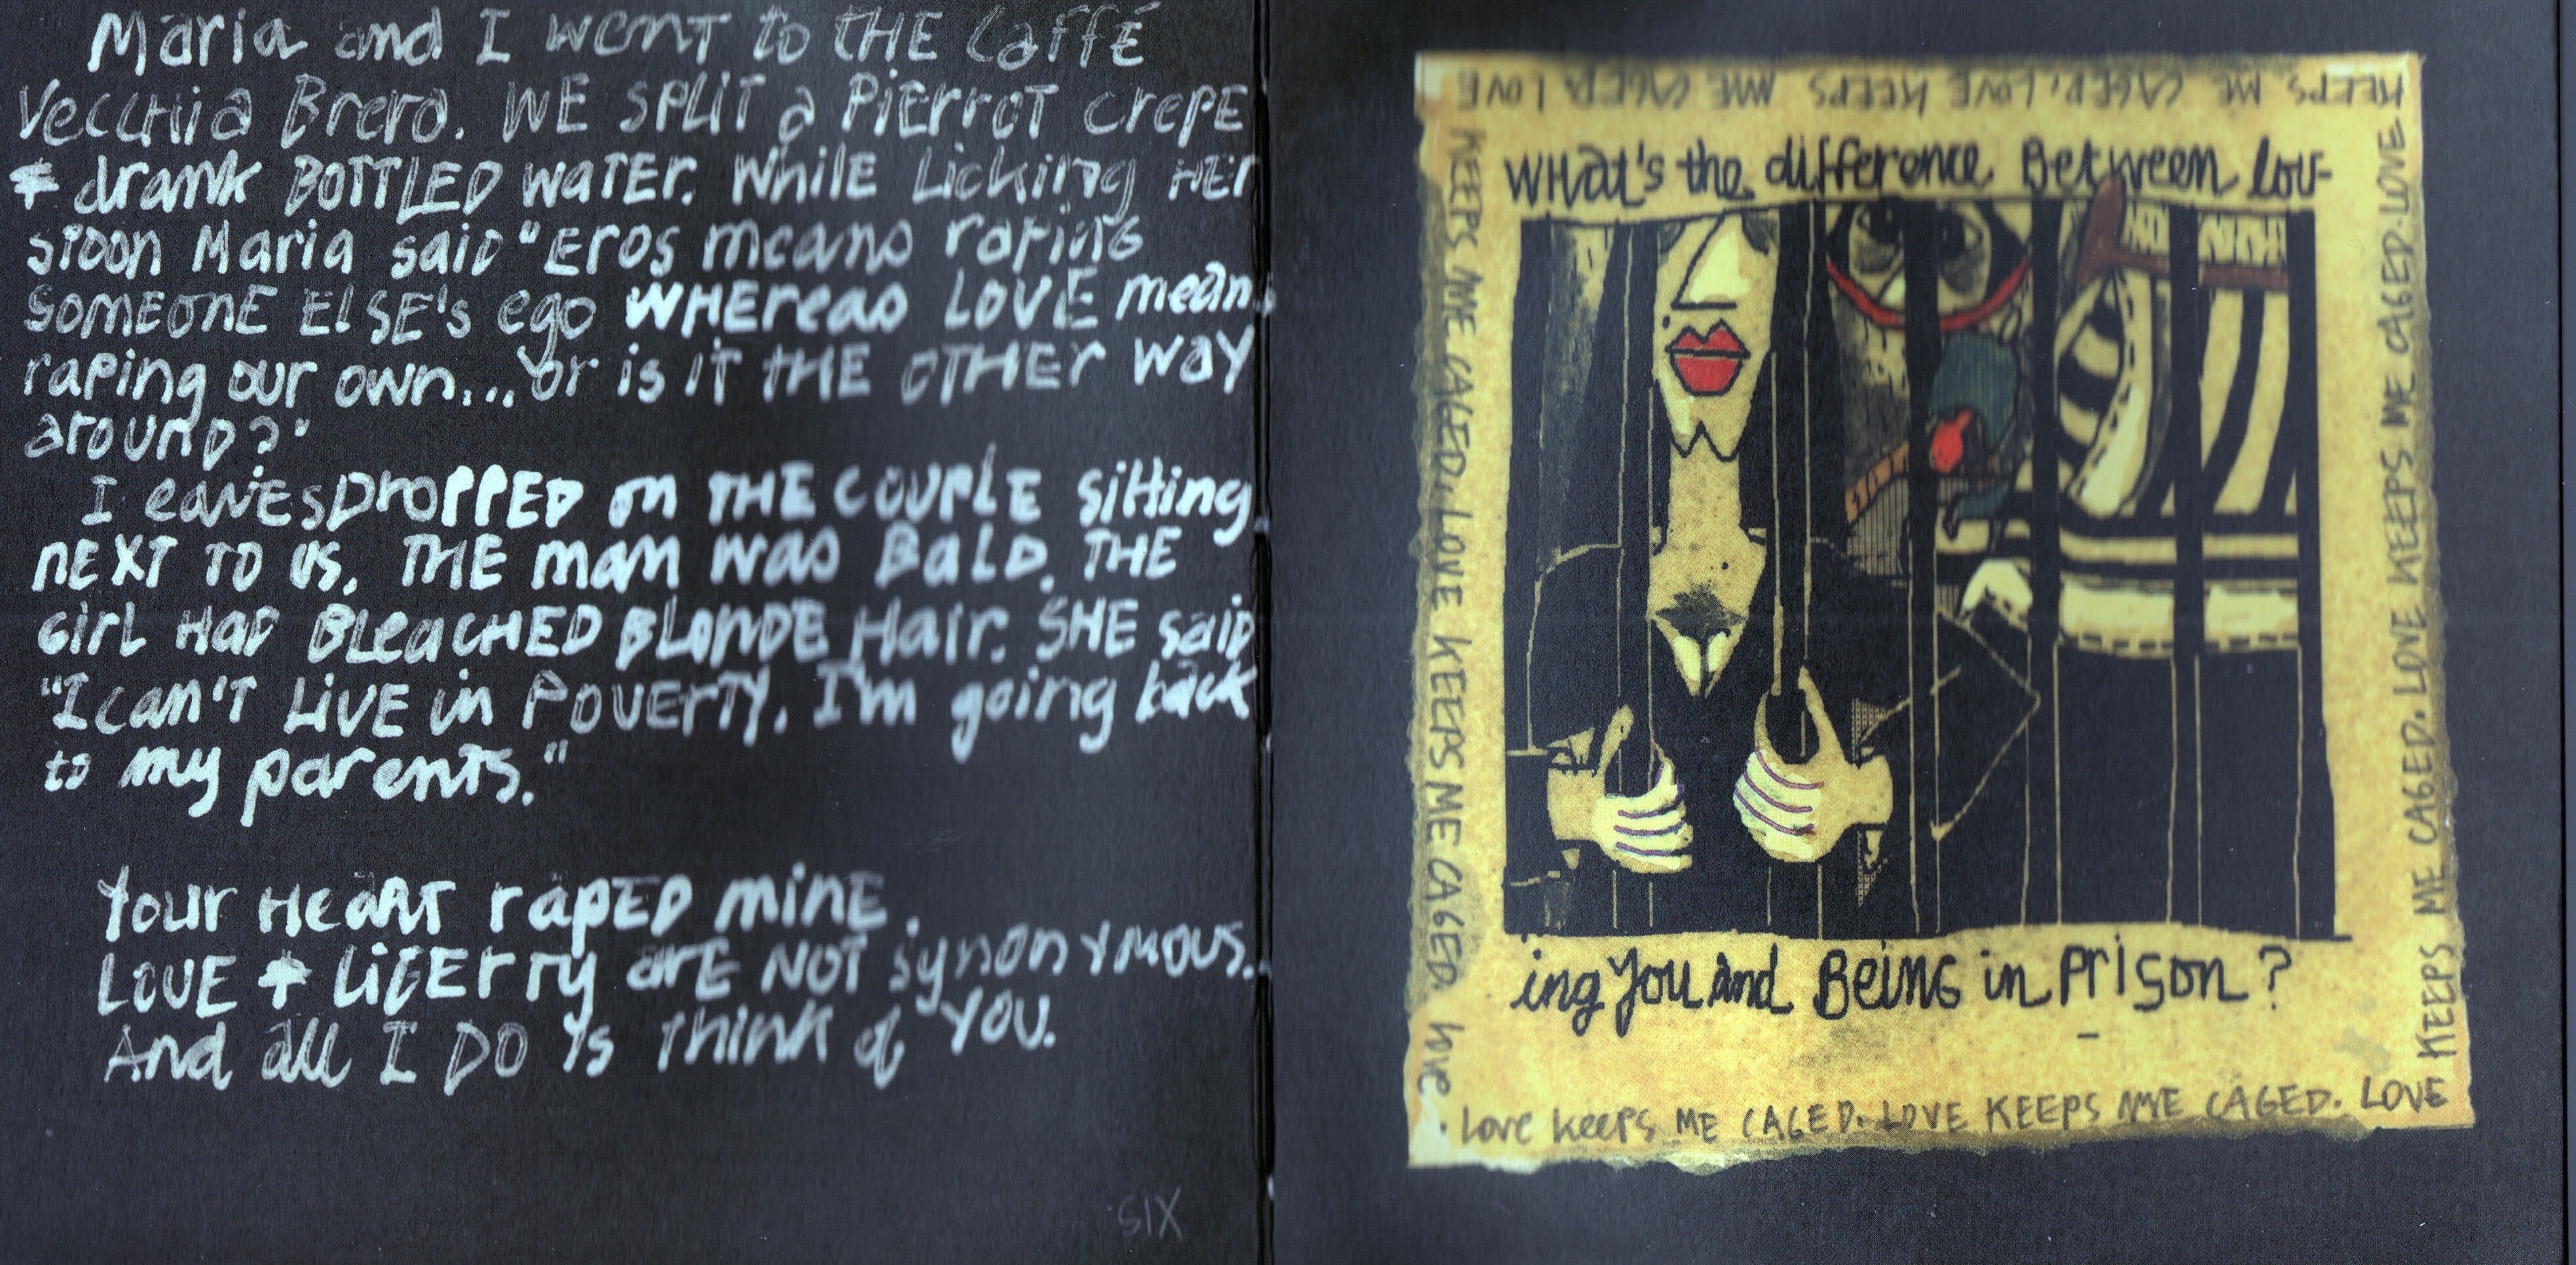 Maria and I went to THE Caffé
Vecchia Brera. WE SPLIT a PIErrOT crepe
+ drank BOTTLED WaTER. While Licking HEr
spoon Maria said "Eros means raping
SOMEONE ElSE's ego WHEreas LOVE means
raping our own... or is iT tHE OTHEr way
around?"
I eavesDroPPED on THE COUPLE sitting
NEXT TO US. THE man was BalD. THE
Girl HaD BLeacHED BLONDE Hair. SHE saiD
"I can'T LiVE in POVErTY. I'm going back
to my parents."
Your HeaRT rapED minE.
LOVE + LiBErTy arE NOT synonYMOUS.
And all I DO is think of YOU.
SIX
KEEPS ME CAGED. LOVE KEEPS ME CAGED. LOVE
WHat's the difference Between lov-
ing You and BEING in PriSon?
KEEPS ME CAGED. LOVE KEEPS ME CAGED. love
. Love keeps ME CAGED. LOVE KEEPS ME CAGED. LOVE
KEEPS ME CAGED. LOVE KEEPS ME CAGED. LOVE